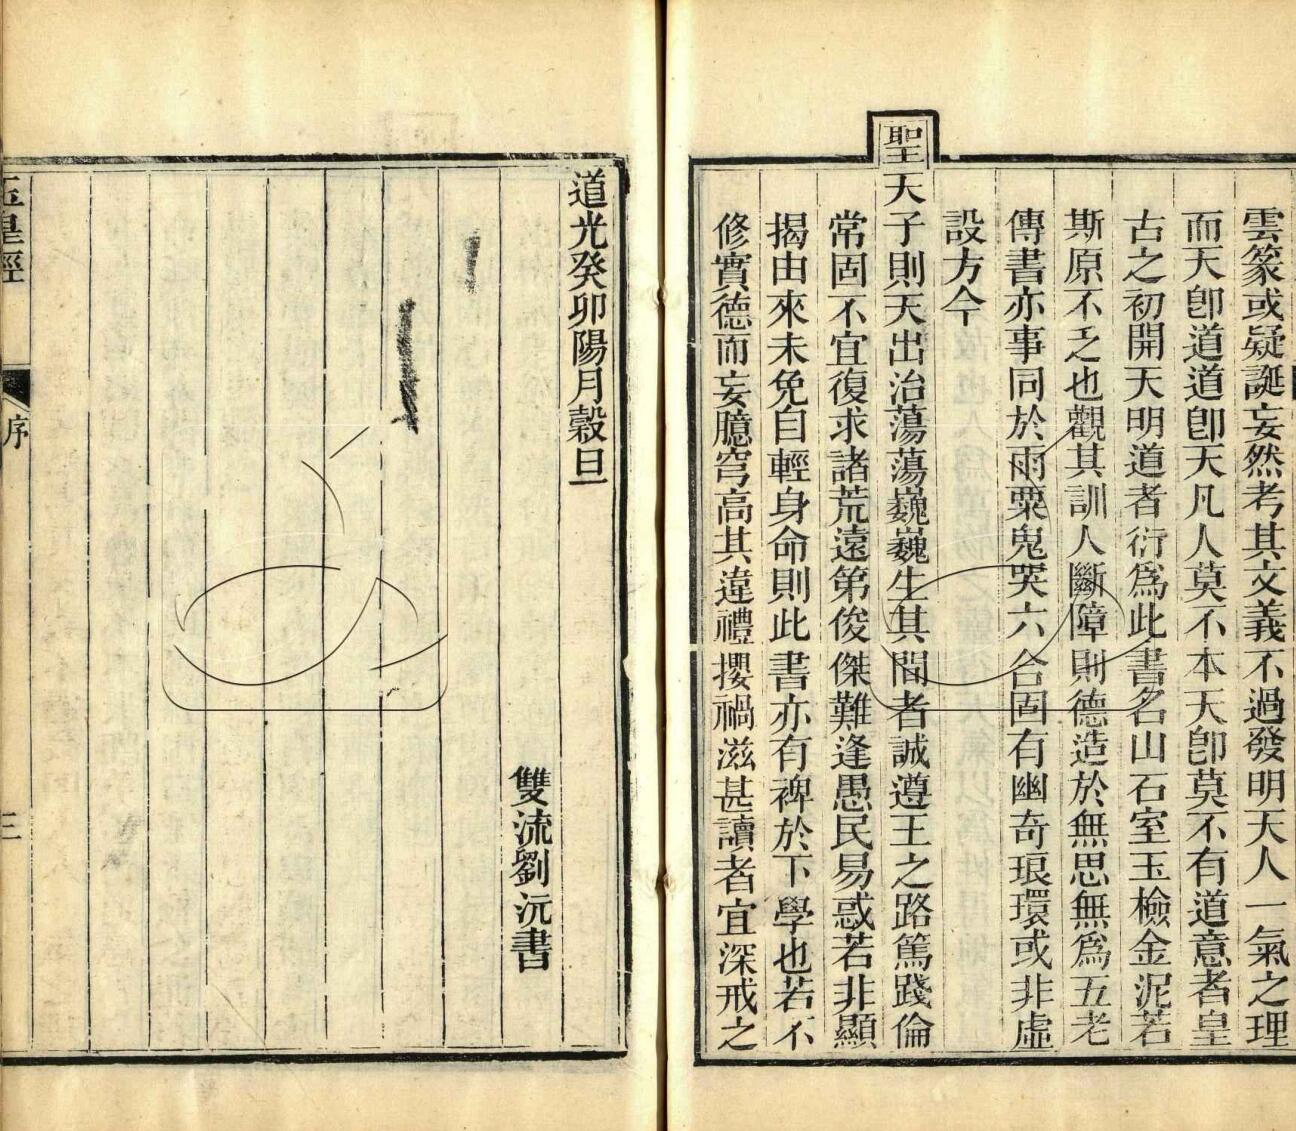 雲篆或疑誕妄然考其文義不過發明天人一氣之理
而天卽道道卽天凡人莫不本天卽莫不有道意者皇
古之初開天明道者衍爲此書名山石室玉檢金泥若
斯原不乏也觀其訓人斷障則德造於無思無爲五老
傳書亦事同於雨粟鬼哭六合固有幽奇琅環或非虛
設方今
聖天子則天出治蕩蕩巍巍生其間者誠遵王之路篤踐倫
常固不宜復求諸荒遠第俊傑難逢愚民易惑若非顯
揭由來未免自輕身命則此書亦有裨於下學也若不
修實德而妄臆穹高其違禮攖禍滋甚讀者宜深戒之
道光癸卯陽月穀旦
雙流劉沅書
玉皇經
序
三